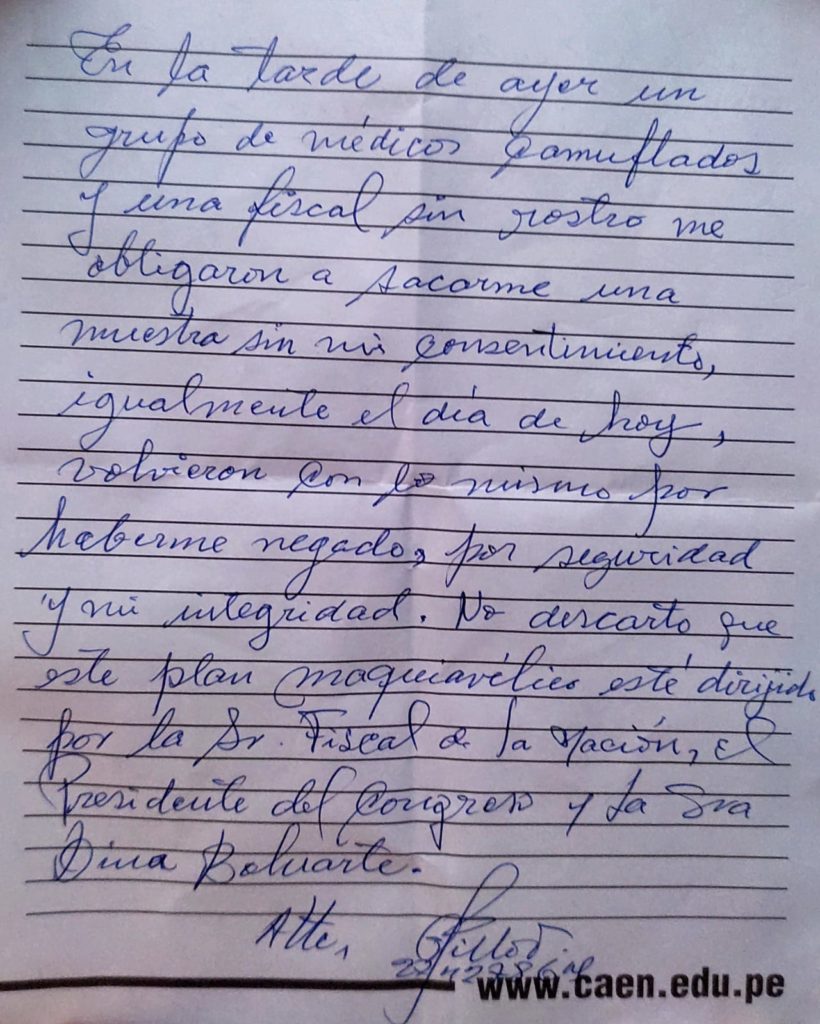 En la tarde de ayer un
grupo de médicos camuflados
y una fiscal sin rostro me
obligaron a sacarme una
muestra sin mi consentimiento,
igualmente el día de hoy,
volvieron con lo mismo por
haberme negado, por seguridad
y mi integridad. No descarto que
este plan maquiavélico esté dirigido
por la Sr. Fiscal de la Nación, el
Presidente del Congreso y la Sra
Dina Boluarte.
Atte,
www.caen.edu.pe